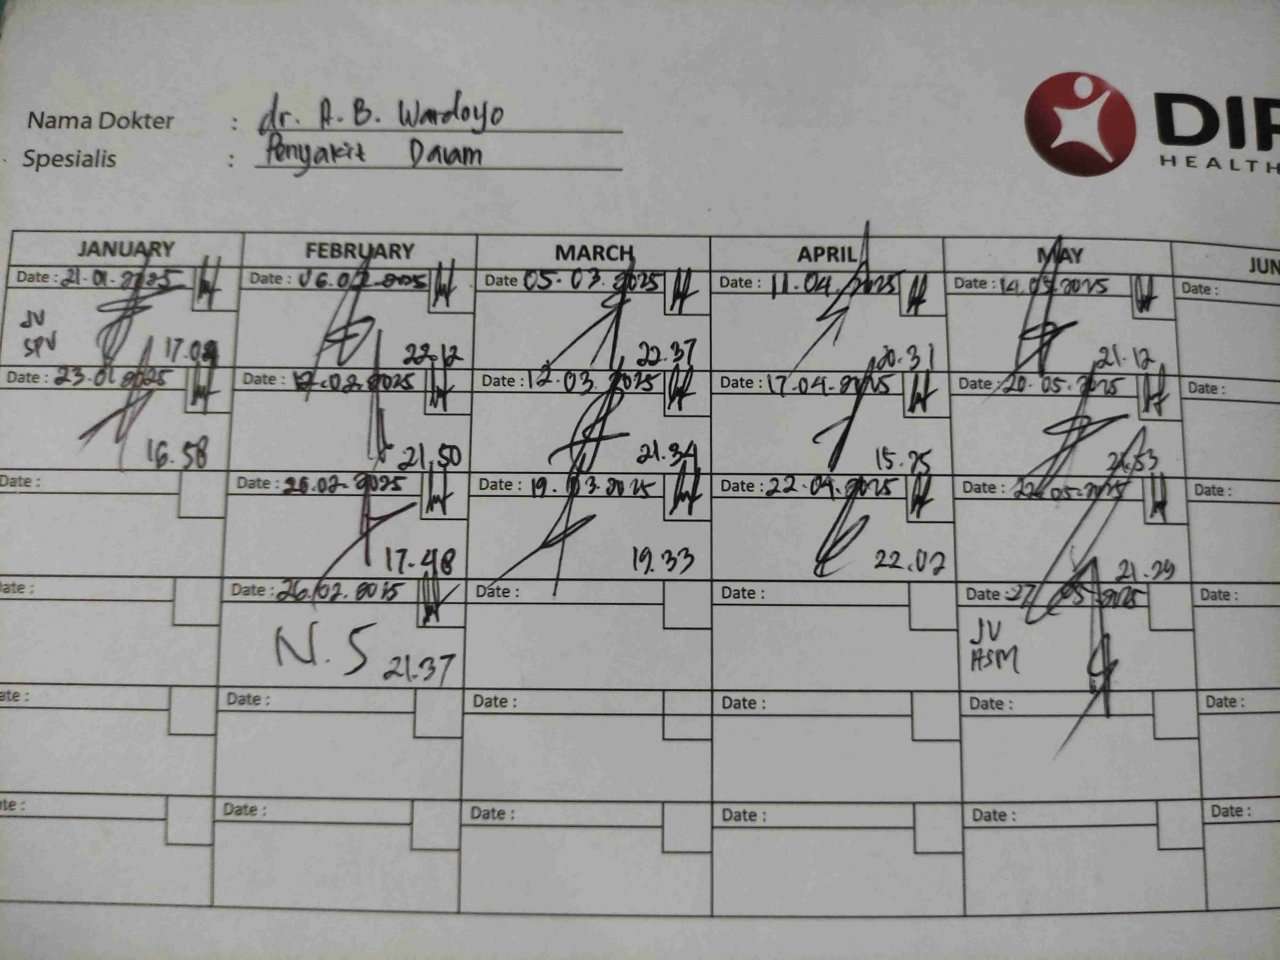 Nama Dokter : dr. A. B. Wardoyo
Spesialis : Penyakit Dalam
DIP
HEALTH
JANUARY FEBRUARY MARCH APRIL MAY JUN
Date : 21.01.2025 Date : 06.02.2025 Date 05.03.2025 Date : 11.04.2025 Date : 14.05.2025 Date :
JV
SPV
17.09 22.12 22.37 20.31 21.12
Date : 23.01.2025 Date : 12.02.2025 Date : 12.03.2025 Date : 17.04.2025 Date : 20.05.2025 Date :
16.58 21.50 21.34 15.25 21.53
Date : Date : 26.02.2025 Date : 19.03.2025 Date : 22.04.2025 Date : 22.05.2025 Date :
17.48 19.33 22.02 21.29
ate : Date : 26.02.2025 Date : Date : Date : 27.05.2025 Date :
N.S 21.37
JV
ASM
ate : Date : Date : Date : Date : Date :
te : Date : Date : Date : Date : Date :